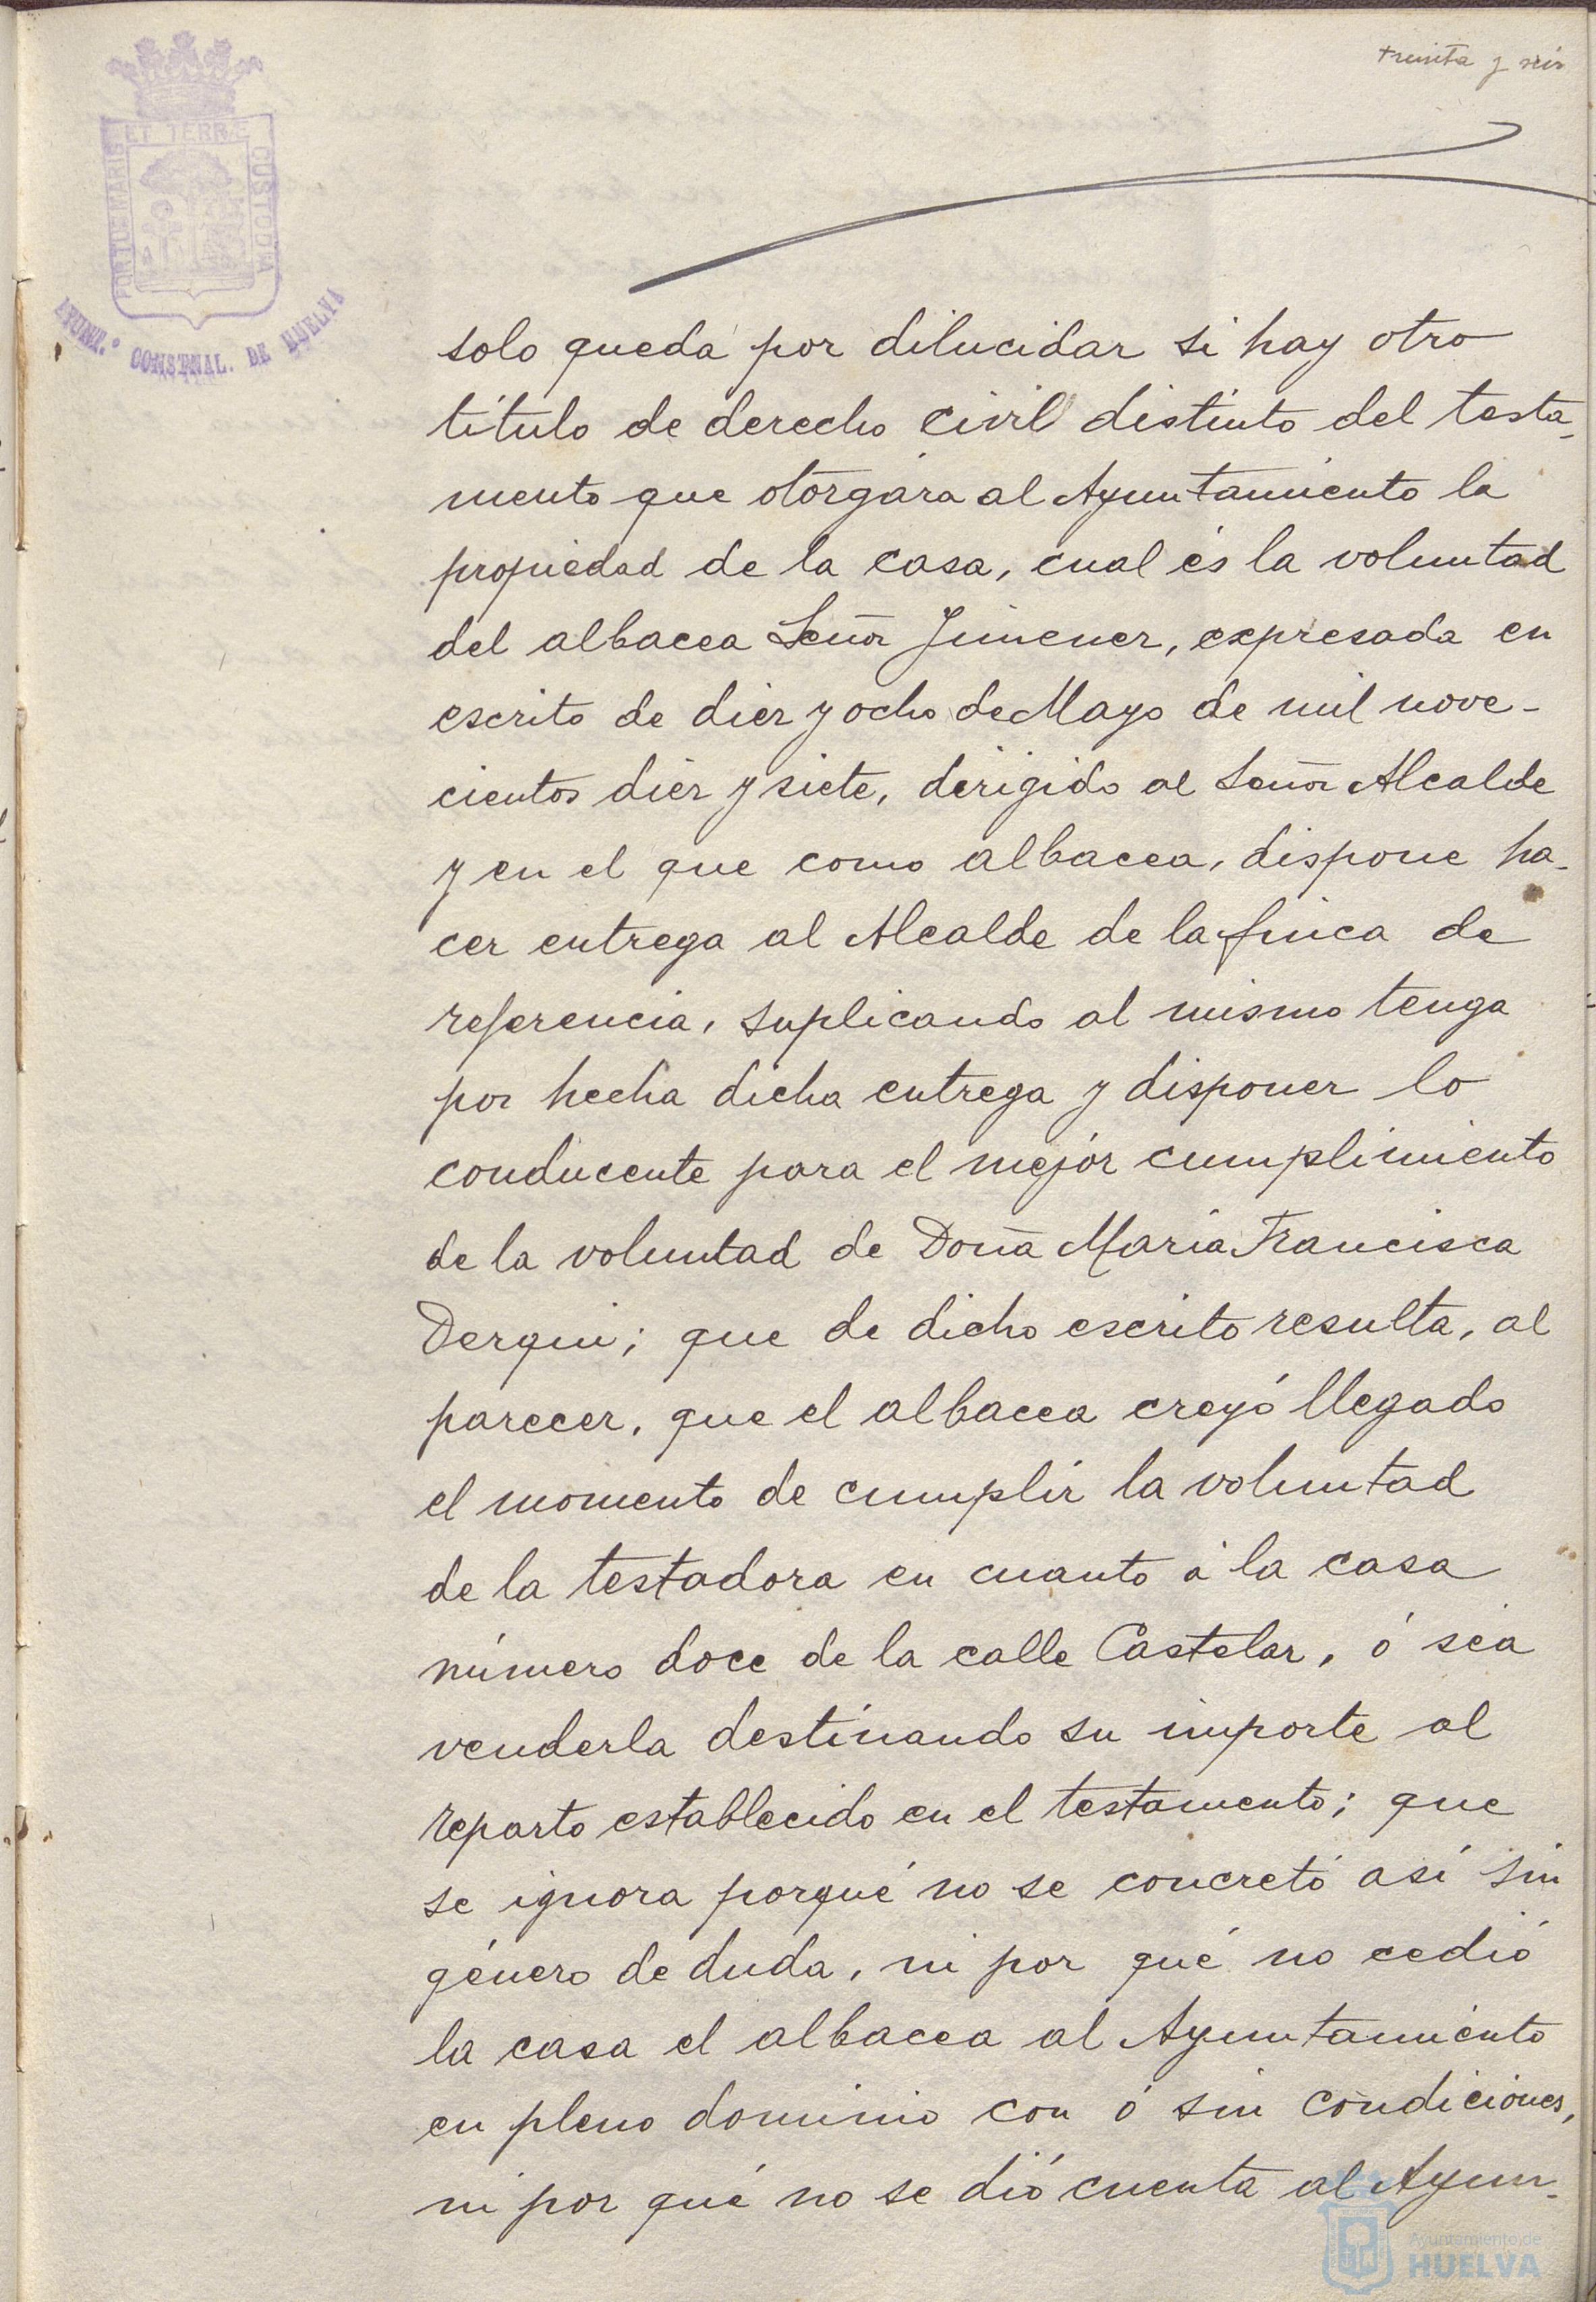 treinta y seis
PORTUS MARIS ET TERRÆ CUSTODIA
AYUNT.º CONSTNAL. DE HUELVA
solo queda por dilucidar si hay otro
título de derecho civil distinto del testa-
mento que otorgára al Ayuntamiento la
propiedad de la casa, cual és la voluntad
del albacea Señor Jimenez, expresada en
escrito de diez y ocho de Mayo de mil nove-
cientos diez y siete, dirigido al Señor Alcalde
y en el que como albacea, dispone ha-
cer entrega al Alcalde de la finca de
referencia, suplicando al mismo tenga
por hecha dicha entrega y disponer lo
conducente para el mejor cumplimiento
de la voluntad de Doña María Francisca
Derqui; que de dicho escrito resulta, al
parecer, que el albacea creyó llegado
el momento de cumplir la voluntad
de la testadora en cuanto á la casa
número doce de la calle Castelar, ó sea
venderla destinando su importe al
reparto establecido en el testamento; que
se ignora porqué no se concretó así sin
género de duda, ni por qué no cedió
la casa el albacea al Ayuntamiento
en pleno dominio con ó sin condiciones,
ni por qué no se dió cuenta al Ayun-
Ayuntamiento de
HUELVA